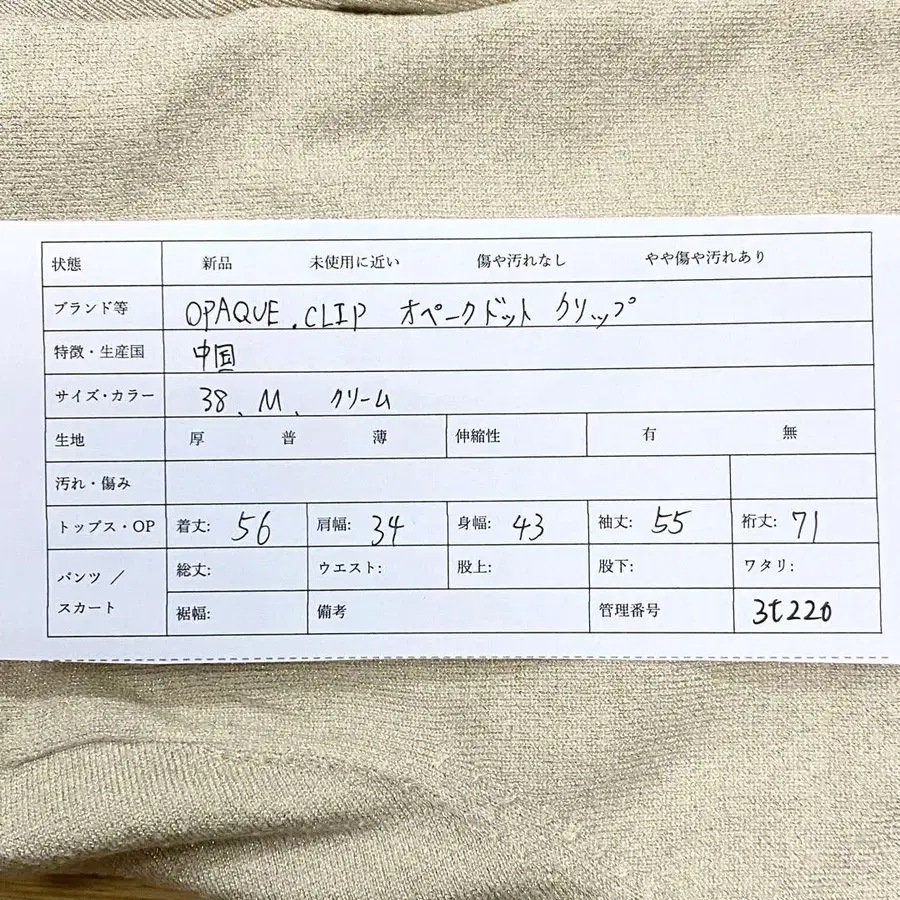 状態 新品 未使用に近い 傷や汚れなし やや傷や汚れあり
ブランド等 OPAQUE.CLIP オペークドット クリップ
特徴・生産国 中国
サイズ・カラー 38、M、クリーム
生地 厚 普 薄 伸縮性 有 無
汚れ・傷み
トップス・OP 着丈: 56 肩幅: 34 身幅: 43 袖丈: 55 裄丈: 71
パンツ／ 総丈: ウエスト: 股上: 股下: ワタリ:
スカート 裾幅: 備考 管理番号 3t220